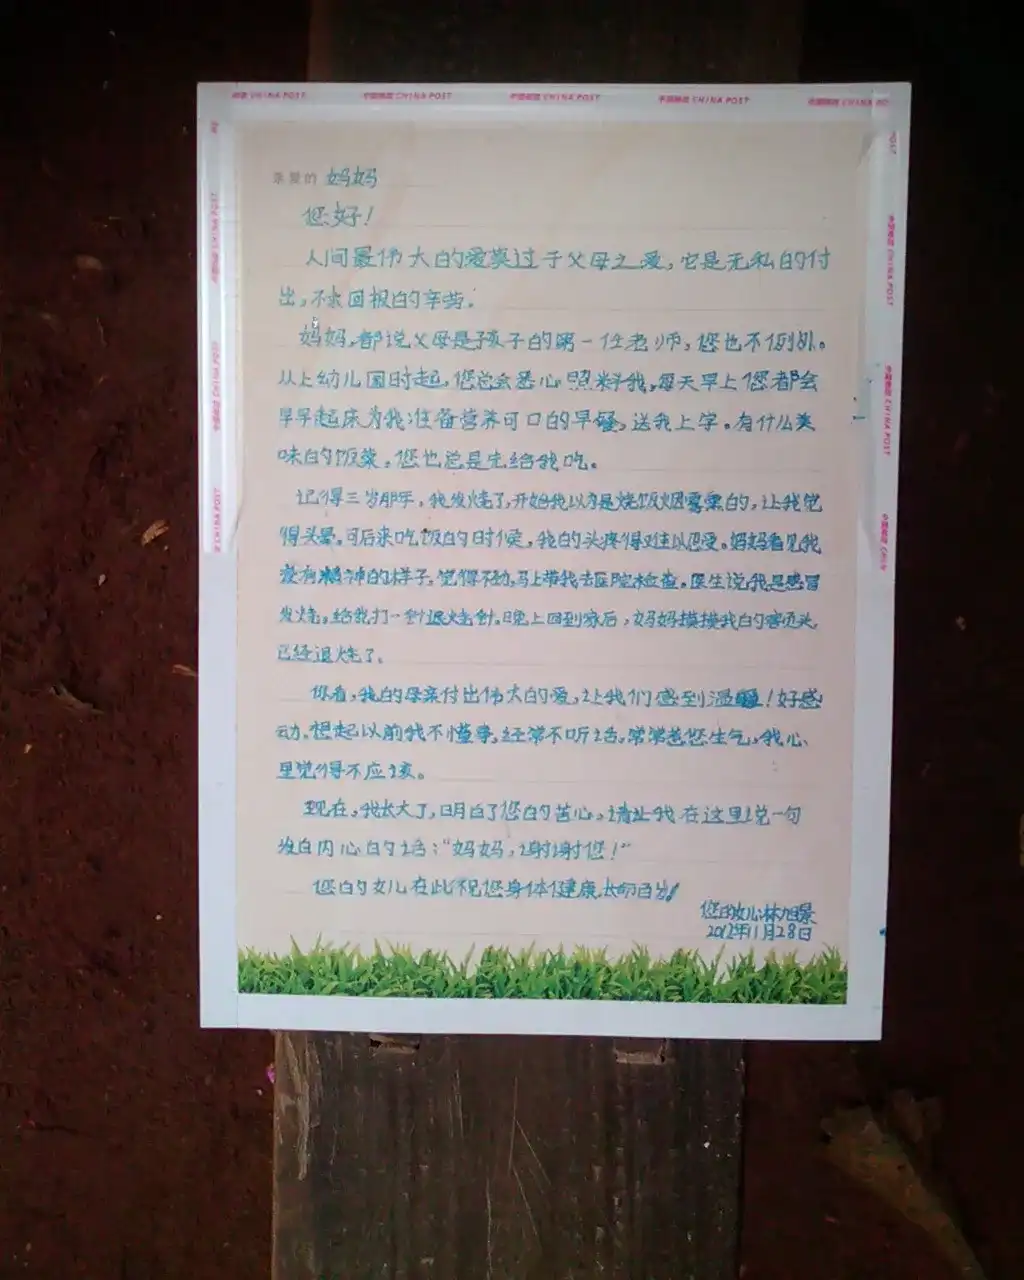 中国邮政 CHINA POST 中国邮政 CHINA POST 中国邮政 CHINA POST 中国邮政 CHINA POST
亲爱的 妈妈
您好！
人间最伟大的爱莫过于父母之爱，它是无私的付
出，不求回报的辛劳。
妈妈，都说父母是孩子的第一任老师，您也不例外。
从上幼儿园时起，您总会悉心照料我，每天早上您都会
早早起床为我准备营养可口的早餐，送我上学。有什么美
味的饭菜，您也总是先给我吃。
记得三岁那年，我发烧了，开始我以为是烧饭烟雾熏的，让我觉
得头晕。可后来吃饭的时候，我的头疼得难以忍受。妈妈看见我
没有精神的样子，觉得不妙，马上带我去医院检查。医生说我是感冒
发烧，给我打一针退烧针。晚上回到家后，妈妈摸摸我的额头，
已经退烧了。
你看，我的母亲付出伟大的爱，让我们感到温暖！好感
动。想起以前我不懂事，经常不听话，常常惹您生气，我心
里觉得不应该。
现在，我长大了，明白了您的苦心，请让我在这里说一句
发自内心的话：“妈妈，谢谢您！”
您的女儿在此祝您身体健康，长命百岁！
您的女儿：林旭景
2012年11月28日